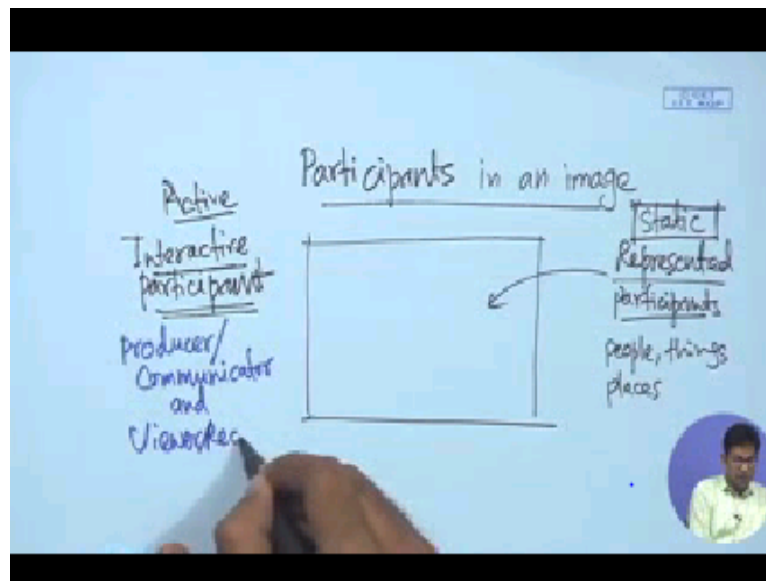 Participants in an image
Active
Interactive
participant
Producer/
Communicator
and
Viewer/Rec
Static
Represented
participants
people, things
places